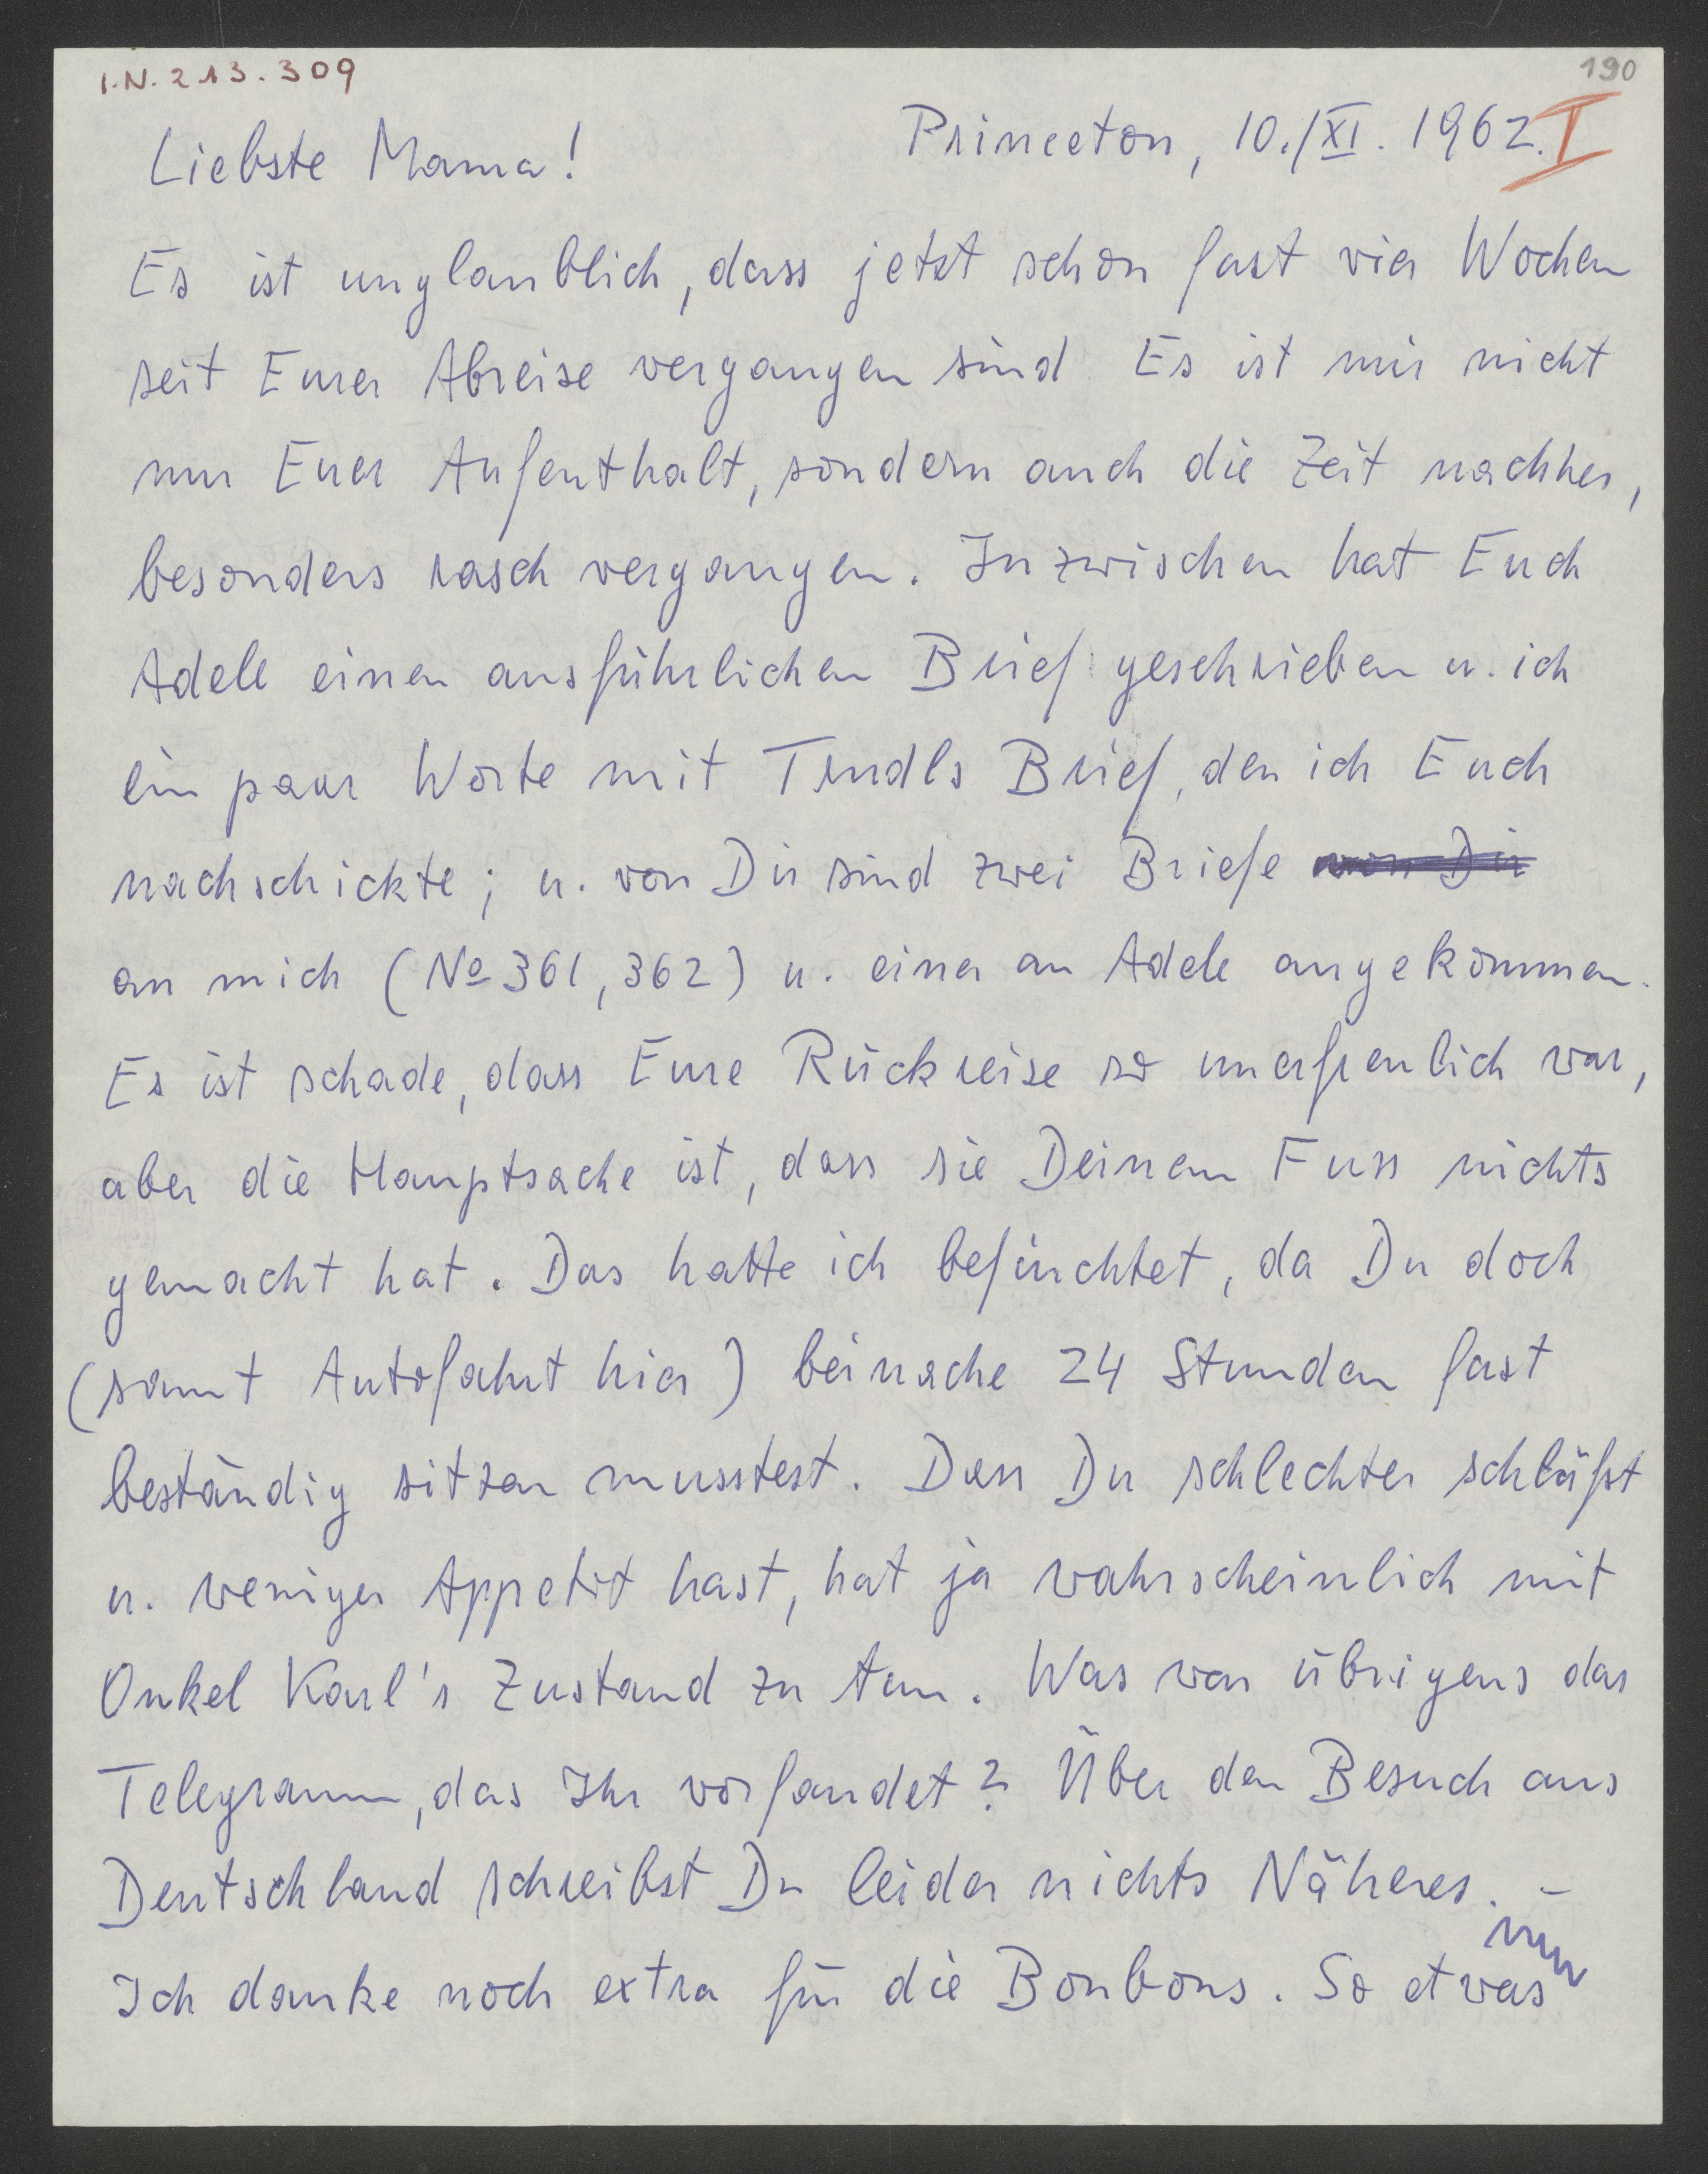 I.N. 213.309
190
Liebste Mama!
Princeton, 10./XI. 1962. I
Es ist unglaublich, dass jetzt schon fast vier Wochen
seit Eurer Abreise vergangen sind. Es ist mir nicht
nur Euer Aufenthalt, sondern auch die Zeit nachher,
besonders rasch vergangen. Inzwischen hat Euch
Adele einen ausführlichen Brief geschrieben u. ich
ein paar Worte mit Trudls Brief, den ich Euch
nachschickte; u. von Dir sind zwei Briefe von Dir
an mich (No 361, 362) u. einer an Adele angekommen.
Es ist schade, dass Eure Rückreise so unerfreulich war,
aber die Hauptsache ist, dass sie Deinem Fuss nichts
gemacht hat. Das hatte ich befürchtet, da Du doch
(samt Autofahrt hier) beinache 24 Stunden fast
beständig sitzen musstest. Dass Du schlechter schläfst
u. weniger Appetit hast, hat ja wahrscheinlich mit
Onkel Karl's Zustand zu tun. Was war übrigens das
Telegramm, das Ihr vorfandet? Über den Besuch aus
Deutschland schreibst Du leider nichts Näheres. –
Ich danke noch extra für die Bonbons. So etwas